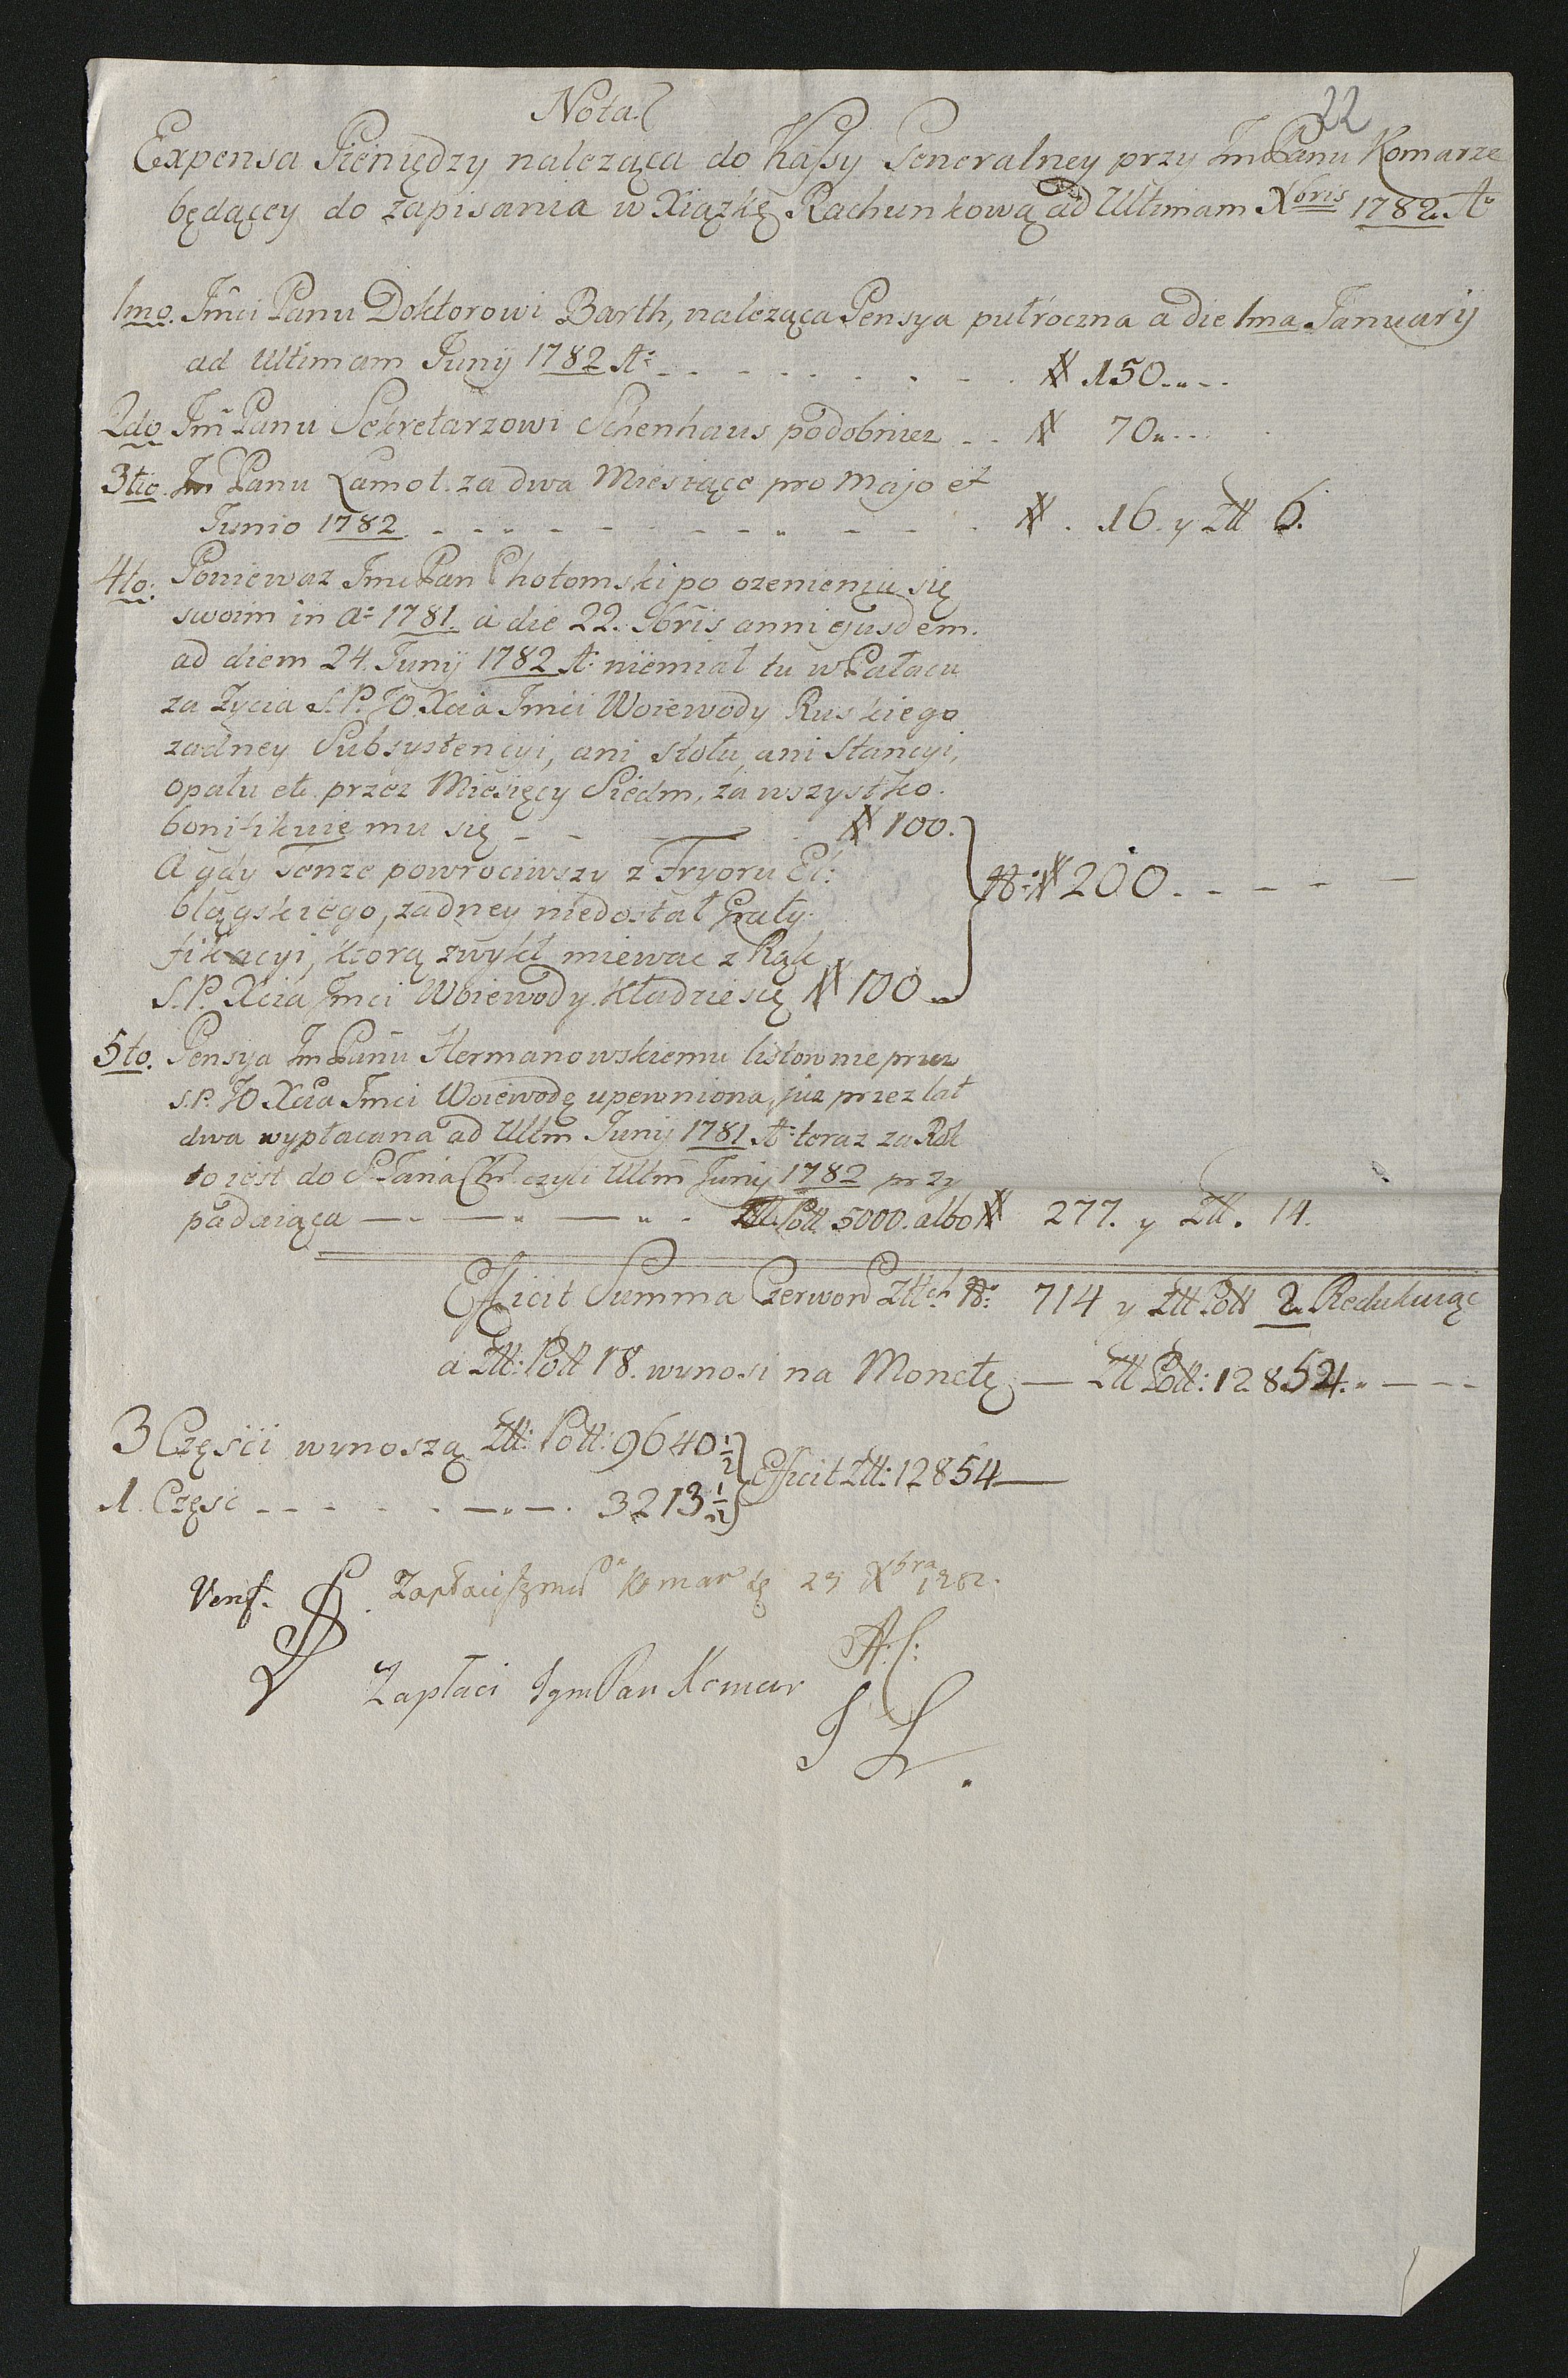 22
Nota
Expensa Pieniędzy należąca do Kassy Generalney przy Jm Panu Komarze
będącey do zapisania w Xiązkę Rachunkową ad Ultimam Xbris 1782. Aº
1mo. Jmci Panu Doktorowi Barth, należąca Pensya pułroczna a die 1ma Januarij
ad Ultimam Junij 1782 Aº - - - - - - # 150.
2do Jm Panu Sekretarzowi Schenhaus podobniez - - # 70.
3tio. Jm Panu Lamot. za dwa Miesiące pro Majo et
Junio 1782 - - - - - - - #. 16. y Złł 6.
4to. Poniewaz Jmc Pan Chotomski po ozenieniu się
swoim in Aº 1781. a die 22. 9bris anni ejusdem.
ad diem 24. Junij 1782 Aº niemiał tu w Pałacu
za Zycia S.P. JO. Xcia Jmci Woiewody Ruskiego
zadney Subsystencyi, ani stołu, ani Stancyi,
Opału etc. przez Miesięcy Siedm, za wszystko.
bonifikuię mu się - - - # 100.
A gdy Tenze powrociwszy z Fryoru El:
bląгskiego, zadney niedostał Graty-
fikacyi, ktorą zwykł miewac z Rąk
S.P. Xcia Jmci Woiewody. kładzie się # 100
# 200. - - - -
5to. Pensya Jm Panu Hermanowskiemu listownie przez
S.P. JO Xcia Jmci Woiewodę upewniona, juz przez lat
dwa wypłacana ad Ultm Junij 1781 Aº teraz za Rok
to iest do S. Jana Chr. czyli Ultm Junij 1782 przy
padaiąca - - - Złł. Poll 5000. albo # 277. y Złł. 14.
Efficit Summa Czerwon Złłch Nº: 714 y Złł Poll 2. Redukuiąc
a Złł: Poll 18. wynosi na Monetę - Złł Poll: 12854. - - -
3 Części wynoszą Złł: Poll: 9640 1/2
1. Częsc - - - - - 3213 1/2
Efficit Złł: 12854
Verif.
Zapłaci Jgmć Pn Komar tę 29 Xbra 1782.
A.C.
Zapłaci Jgm Pan Komar
S L.